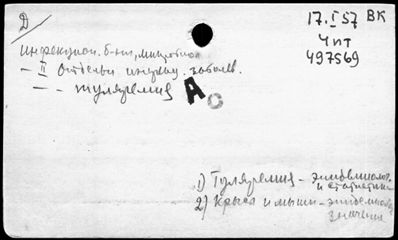 Д
17.I57 ВК
Чпт
497569
Инфекцион. б-ни, микробиол
– II Отдельн инфекц. заболев.
– – туляремия
АС
1) Туляремия – эпидемиолог. и статистика
2) Крысы и мыши – эпидемиолог. значение